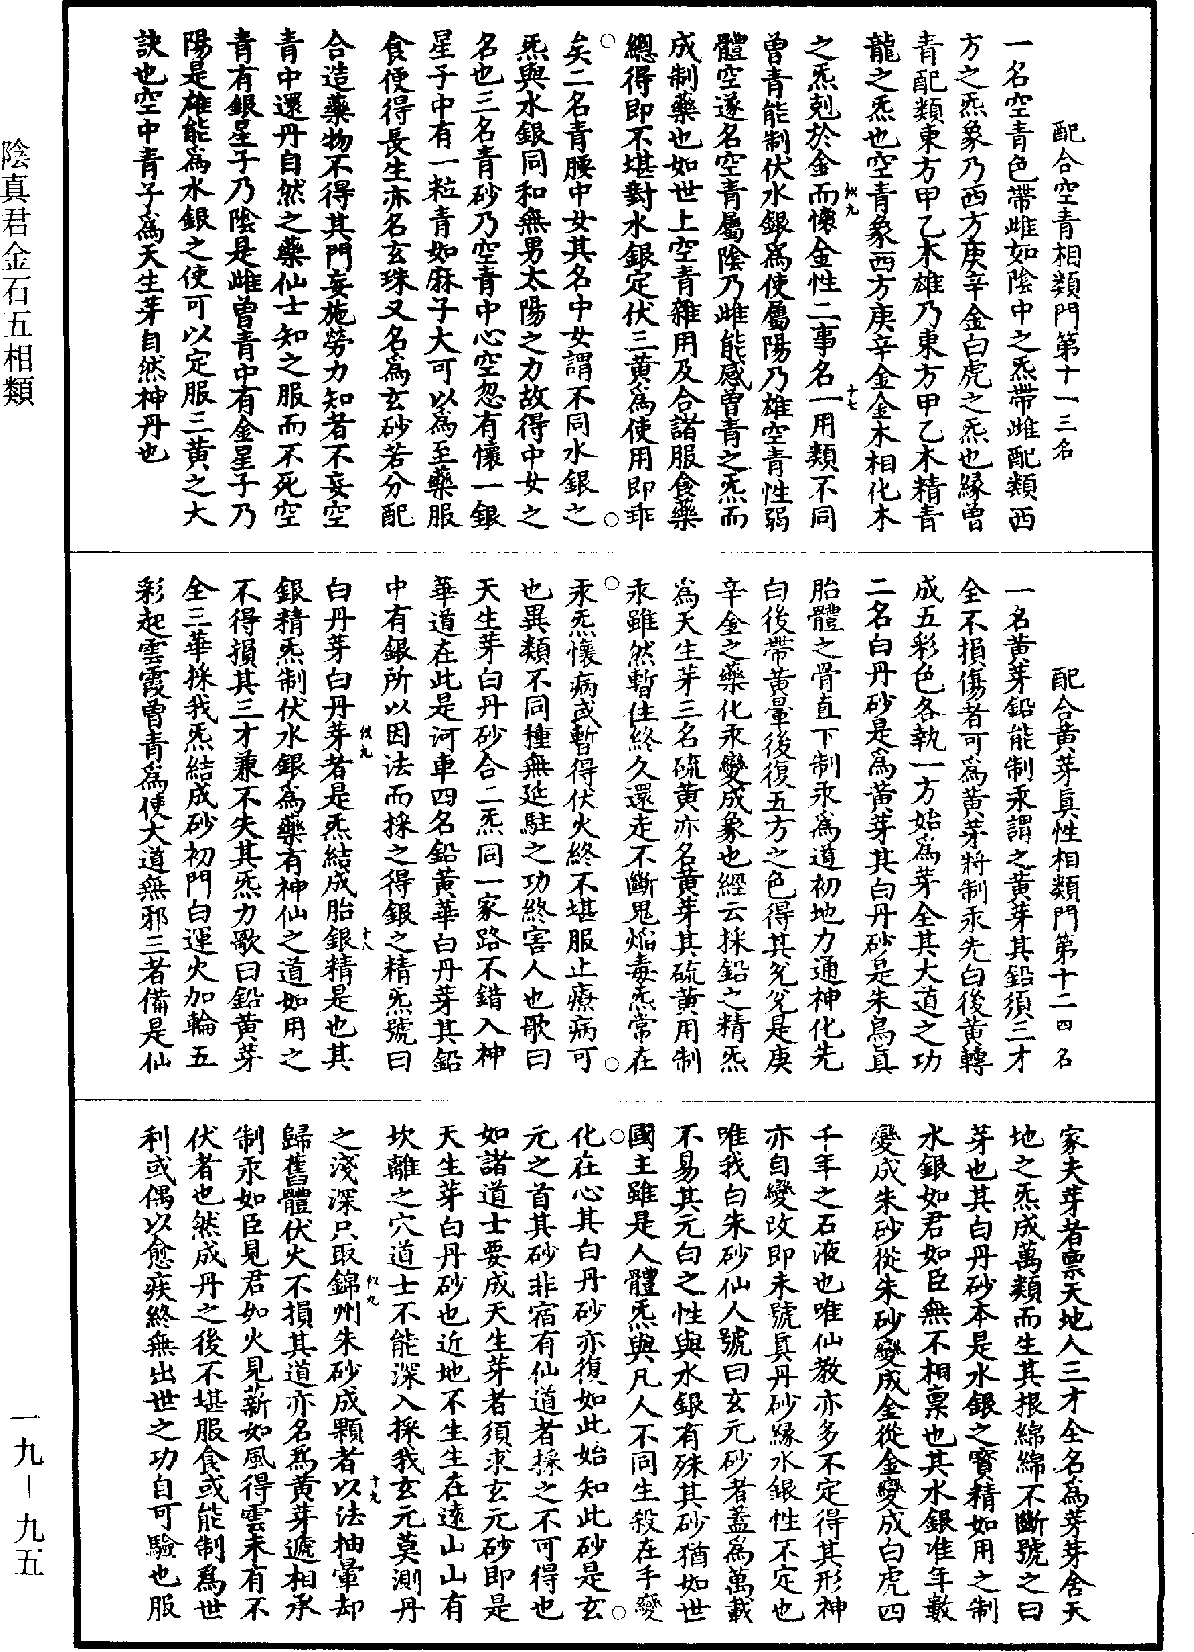 配合空青相類門第十一三名
一名空青色帶雌如陰中之炁帶雌配類西
方之炁象乃西方庚辛金白虎之炁也緣曾
青配類東方甲乙木雄乃東方甲乙木精青
龍之炁也空青象西方庚辛金金木相化木
之炁剋於金而懷金性二事名一用類不同
曾青能制伏水銀爲使屬陽乃雄空青性弱
體空遂名空青屬陰乃雌能感曾青之炁而
成制藥也如世上空青雜用及合諸服食藥
總得即不堪對水銀定伏三黃爲使用即乖
矣二名青腰中女其名中女謂不同水銀之
炁與水銀同和無男太陽之力故得中女之
名也三名青砂乃空青中心空忽有懷一銀
星子中有一粒青如麻子大可以爲至藥服
食便得長生亦名玄珠又名爲玄砂若分配
合造藥物不得其門妄施勞力知者不妄空
青中還丹自然之藥仙士知之服而不死空
青有銀星子乃陰是雌曾青中有金星子乃
陽是雄能爲水銀之使可以定服三黃之大
訣也空中青子爲天生芽自然神丹也
配合黃芽眞性相類門第十二四名
一名黃芽鉛能制汞謂之黃芽其鉛須三才
全不損傷者可爲黃芽將制汞先白後黃轉
成五彩色各執一方始爲芽全其大道之功
二名白丹砂是爲黃芽其白丹砂是朱鳥眞
胎體之骨直下制汞爲道初地力通神化先
白後帶黃暈後復五方之色得其兊兊是庚
辛金之藥化汞變成象也經云採鉛之精炁
爲天生芽三名硫黃亦名黃芽其硫黃用制
汞雖然暫住終久還走不斷鬼焰毒炁常在
汞炁懷病或暫得伏火終不堪服止療病可
也異類不同種無延駐之功終害人也歌曰
天生芽白丹砂合二炁同一家路不錯入神
華道在此是河車四名鉛黃華白丹芽其鉛
中有銀所以因法而採之得銀之精炁號曰
白丹芽白丹芽者是炁結成胎銀精是也其
銀精炁制伏水銀爲藥有神仙之道如用之
不得損其三才兼不失其炁力歌曰鉛黃芽
全三華採我炁結成砂初門白運火加輪五
彩起雲霞曾青爲使大道無邪三者備是仙
家夫芽者稟天地人三才全名爲芽芽含天
地之炁成萬類而生其根綿綿不斷號之曰
芽也其白丹砂本是水銀之寶精如用之制
水銀如君如臣無不相稟也其水銀准年數
變成朱砂從朱砂變成金從金變成白虎四
千年之石液也唯仙教亦多不定得其形神
亦自變改即未號眞丹砂緣水銀性不定也
唯我白朱砂仙人號曰玄元砂者蓋爲萬載
不易其元白之性與水銀有殊其砂猶如世
國主雖是人體炁與凡人不同生殺在手變
化在心其白丹砂亦復如此始知此砂是玄
元之首其砂非宿有仙道者採之不可得也
如諸道士要成天生芽者須求玄元砂即是
天生芽白丹砂也近地不生生在遠山山有
坎離之穴道士不能深入採我玄元莫測丹
之淺深只取錦州朱砂成顆者以法抽暈却
歸舊體伏火不損其道亦名爲黃芽遞相承
制汞如臣見君如火見薪如風得雲未有不
伏者也然成丹之後不堪服食或能制爲世
利或偶以愈疾終無出世之功自可驗也服
陰真君金石五相類
一九—九五